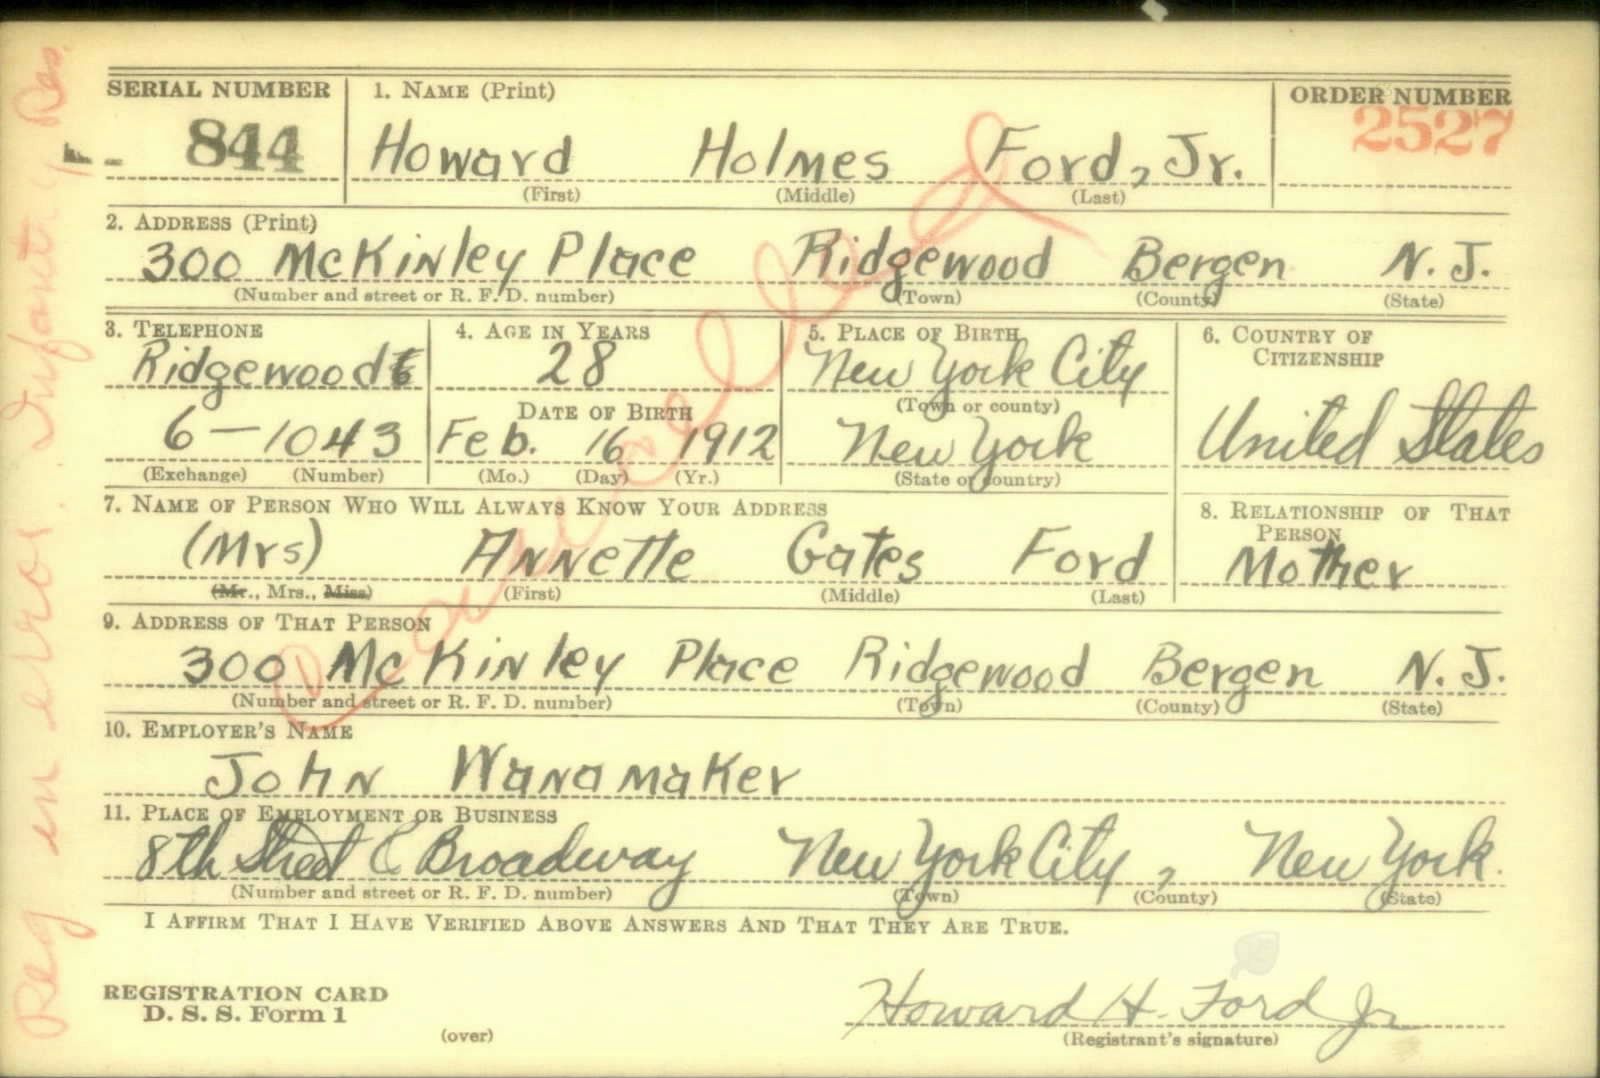 SERIAL NUMBER 1. NAME (Print) ORDER NUMBER
844 Howard Holmes Ford, Jr. 2527
(First) (Middle) (Last)
2. ADDRESS (Print)
300 McKinley Place Ridgewood Bergen N. J.
(Number and street or R. F. D. number) (Town) (County) (State)
3. TELEPHONE 4. AGE IN YEARS 5. PLACE OF BIRTH 6. COUNTRY OF
CITIZENSHIP
Ridgewood 28 New York City
DATE OF BIRTH (Town or county)
6-1043 Feb. 16 1912 New York United States
(Exchange) (Number) (Mo.) (Day) (Yr.) (State or country)
7. NAME OF PERSON WHO WILL ALWAYS KNOW YOUR ADDRESS 8. RELATIONSHIP OF THAT
PERSON
(Mrs) Annette Gates Ford Mother
(Mr., Mrs., Miss) (First) (Middle) (Last)
9. ADDRESS OF THAT PERSON
300 McKinley Place Ridgewood Bergen N. J.
(Number and street or R. F. D. number) (Town) (County) (State)
10. EMPLOYER'S NAME
John Wanamaker
11. PLACE OF EMPLOYMENT OR BUSINESS
8th Street & Broadway New York City, New York.
(Number and street or R. F. D. number) (Town) (County) (State)
I AFFIRM THAT I HAVE VERIFIED ABOVE ANSWERS AND THAT THEY ARE TRUE.
REGISTRATION CARD
D. S. S. Form 1
(over)
Howard H. Ford Jr
(Registrant's signature)
Cancelled
Reg in error. Infantry Res.